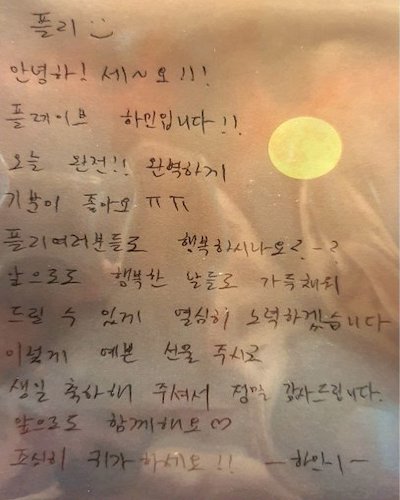 플리
안녕하! 세~요!!!
플레이브 하민입니다!!
오늘 완전!! 완벽하게
기분이 좋아요 ㅠㅠ
플리여러분들도 행복하시나요?-?
앞으로도 행복한 날들로 가득채워
드릴 수 있게 열심히 노력하겠습니다
이렇게 예쁜 선물 주시고
생일 축하해 주셔서 정말 감사드립니다.
앞으로도 함께해요♡
조심히 귀가하세요!! -하민-